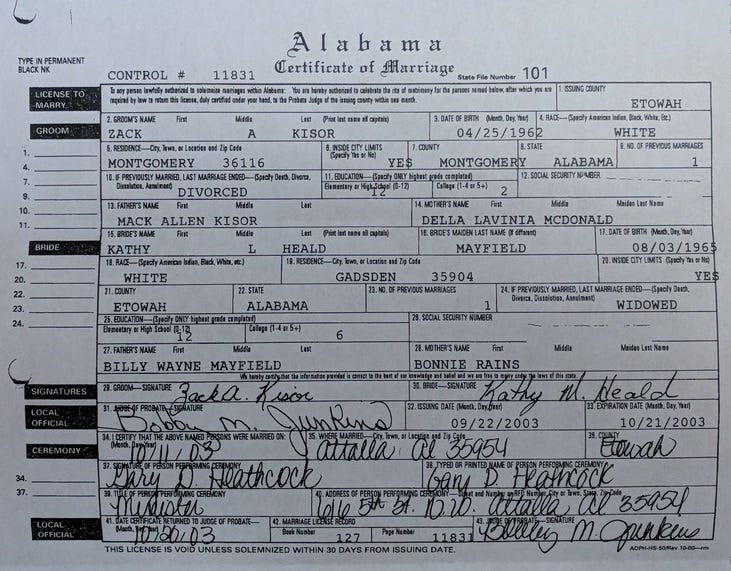 Alabama
TYPE IN PERMANENT
BLACK NK
CONTROL # 11831
Certificate of Marriage
State File Number 101
LICENSE TO MARRY
To any person lawfully authorized to solemnize marriages within Alabama: You are hereby authorized to celebrate the rites of matrimony for the persons named below, and are
required by law to return this license, duly certified under your hand, to the Probate Judge of the issuing county within one month.
1. ISSUING COUNTY
ETOWAH
GROOM
2. GROOM'S NAME First Middle Last (Print last name all capitals)
ZACK A KISOR
3. DATE OF BIRTH (Month, Day, Year)
04/25/1962
4. RACE—(Specify American Indian, Black, White, Etc.)
WHITE
5. RESIDENCE—City, Town, or Location and Zip Code
MONTGOMERY 36116
6. INSIDE CITY LIMITS (Specify Yes or No)
YES
7. COUNTY
MONTGOMERY
8. STATE
ALABAMA
9. NO. OF PREVIOUS MARRIAGES
1
10. IF PREVIOUSLY MARRIED, LAST MARRIAGE ENDED—(Specify Death, Divorce,
Dissolution, Annulment)
DIVORCED
11. EDUCATION—(Specify ONLY highest grade completed)
Elementary or High School (0-12) College (1-4 or 5+)
12 2
12. SOCIAL SECURITY NUMBER
13. FATHER'S NAME First Middle Last
MACK ALLEN KISOR
14. MOTHER'S NAME First Middle Maiden Last Name
DELLA LAVINIA MCDONALD
BRIDE
15. BRIDE'S NAME First Middle Last (Print last name all capitals)
KATHY L HEALD
16. BRIDE'S MAIDEN LAST NAME (If different)
MAYFIELD
17. DATE OF BIRTH (Month, Day, Year)
08/03/1965
18. RACE—(Specify American Indian, Black, White, etc.)
WHITE
19. RESIDENCE—City, Town, or Location and Zip Code
GADSDEN 35904
20. INSIDE CITY LIMITS (Specify Yes or No)
YES
21. COUNTY
ETOWAH
22. STATE
ALABAMA
23. NO. OF PREVIOUS MARRIAGES
1
24. IF PREVIOUSLY MARRIED, LAST MARRIAGE ENDED—(Specify Death,
Divorce, Dissolution, Annulment)
WIDOWED
25. EDUCATION—(Specify ONLY highest grade completed)
Elementary or High School (0-12) College (1-4 or 5+)
12 6
26. SOCIAL SECURITY NUMBER
27. FATHER'S NAME First Middle Last
BILLY WAYNE MAYFIELD
28. MOTHER'S NAME First Middle Maiden Last Name
BONNIE RAINS
We hereby certify that the information provided is correct to the best of our knowledge and belief and we are free to marry under the laws of this state.
SIGNATURES
29. GROOM—SIGNATURE
Zack A. Kisor
30. BRIDE—SIGNATURE
Kathy M. Heald
LOCAL OFFICIAL
31. JUDGE OF PROBATE—SIGNATURE
Bobby M. Junkins
32. ISSUING DATE (Month, Day, Year)
09/22/2003
33. EXPIRATION DATE (Month, Day, Year)
10/21/2003
CEREMONY
34. I CERTIFY THAT THE ABOVE NAMED PERSONS WERE MARRIED ON:
(Month, Day, Year)
10/11/03
35. WHERE MARRIED—City, Town, or Location and Zip Code
Attalla Al 35954
36. COUNTY
Etowah
37. SIGNATURE OF PERSON PERFORMING CEREMONY
Gary D. Heathcock
38. TYPED OR PRINTED NAME OF PERSON PERFORMING CEREMONY
Gary D. Heathcock
39. TITLE OF PERSON PERFORMING CEREMONY
Minister
40. ADDRESS OF PERSON PERFORMING CEREMONY—Street and Number or RFD Number, City or Town, State, Zip Code
616 5th St. Attalla Al 35954
LOCAL OFFICIAL
41. DATE CERTIFICATE RETURNED TO JUDGE OF PROBATE—
(Month, Day, Year)
10/20/03
42. MARRIAGE LICENSE RECORD
Book Number 127 Page Number 11831
43. JUDGE OF PROBATE—SIGNATURE
Bobby M. Junkins
THIS LICENSE IS VOID UNLESS SOLEMNIZED WITHIN 30 DAYS FROM ISSUING DATE.
ADPH-HS-50/Rev 10-00—rm
1.
4.
7.
9.
10.
11.
17.
20.
22.
23.
24.
34.
37.